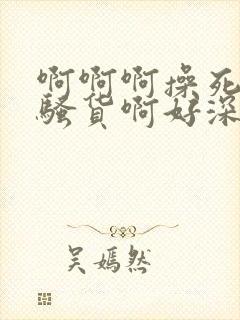 啊啊啊操死
骚货啊好深
吴嫣然